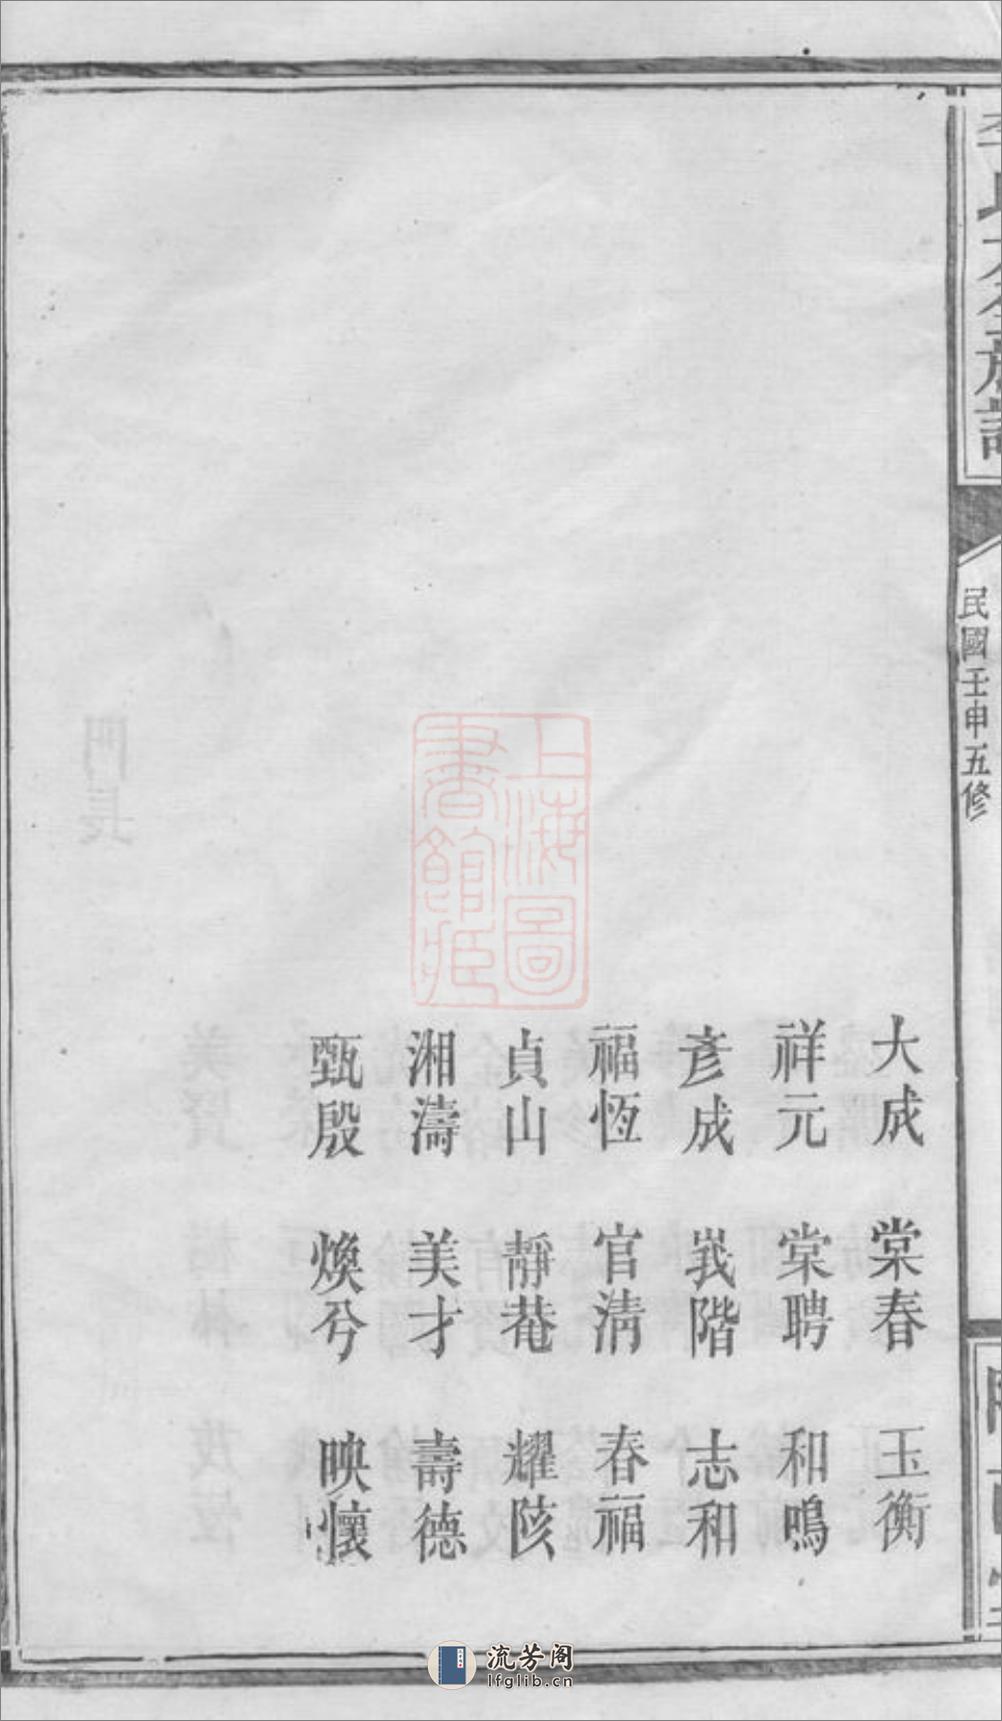 李氏大全族譜
民國壬申五修
隴西堂
大成 棠春 玉衡
祥元 棠聘 和鳴
彥成 峩階 志和
福恆 官清 春福
貞山 靜菴 耀陔
湘濤 美才 壽德
甄殷 煥兮 映懷
上海圖書館藏
流芳阁
lfglib.cn